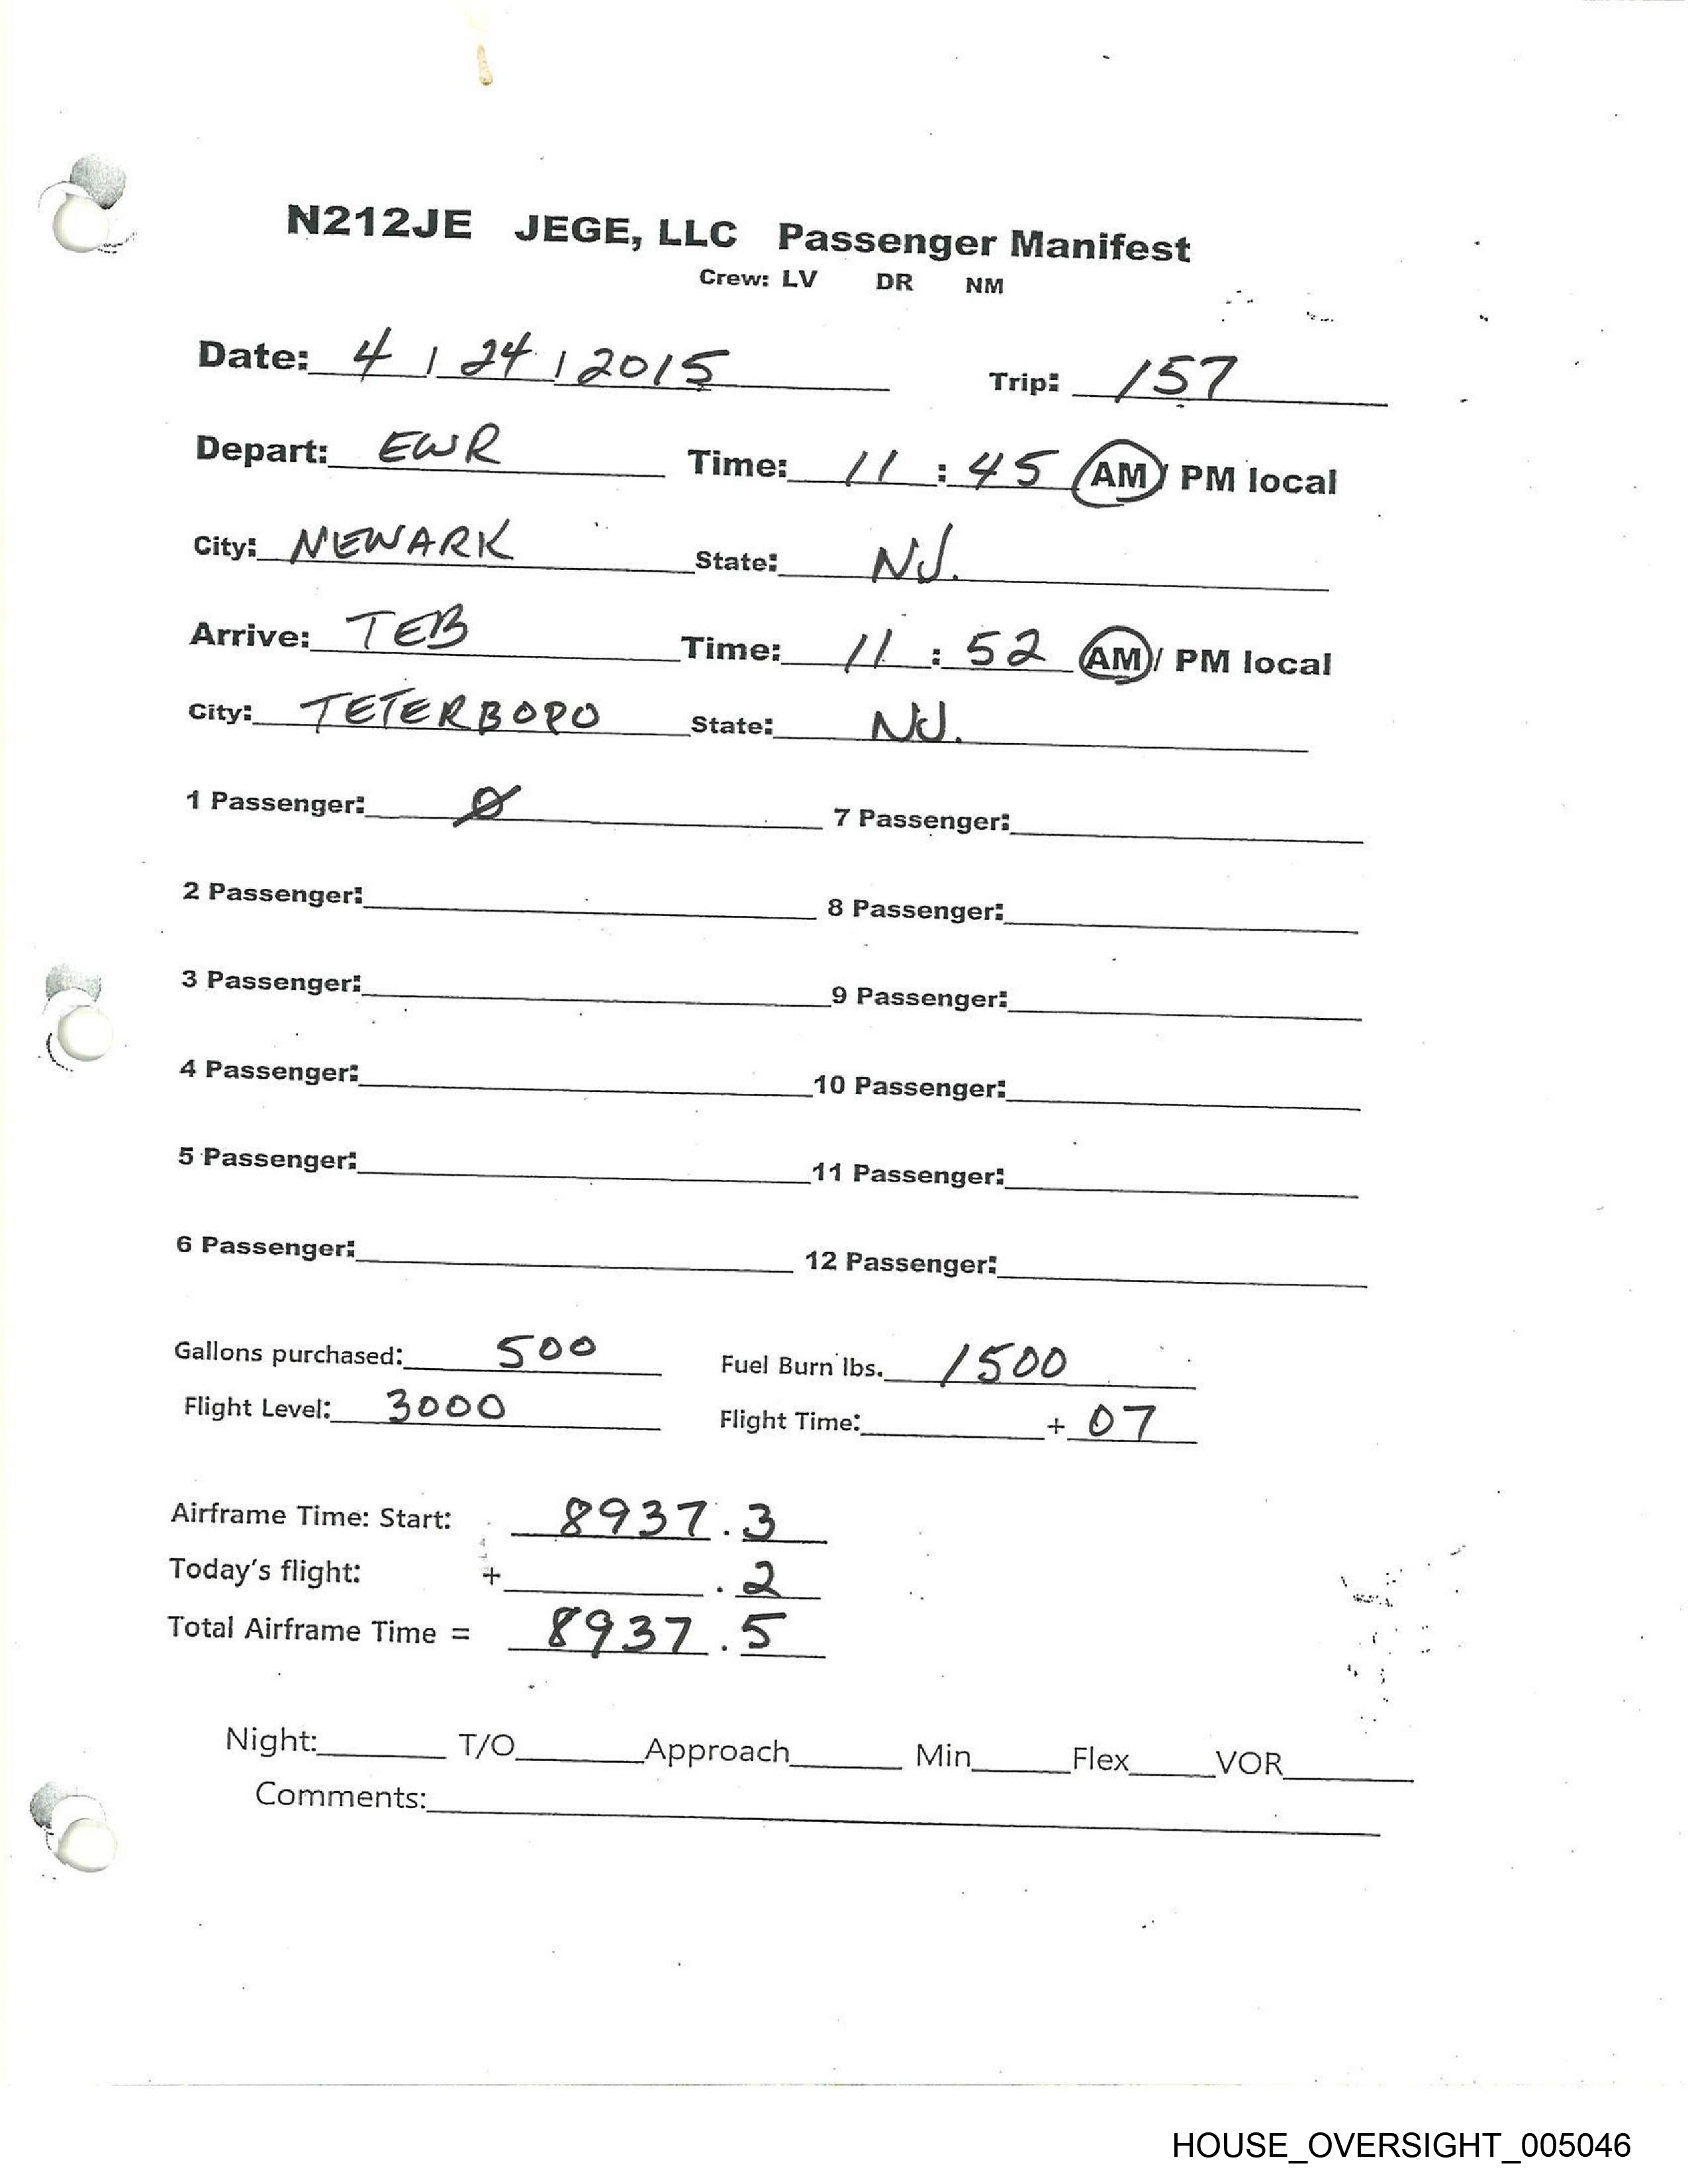 N212JE JEGE, LLC Passenger Manifest
Crew: LV DR NM
Date: 4 / 24 / 2015 Trip: 157
Depart: EWR Time: 11 : 45 AM / PM local
City: NEWARK State: NJ.
Arrive: TEB Time: 11 : 52 AM / PM local
City: TETERBORO State: NJ.
1 Passenger: Ø 7 Passenger:
2 Passenger: 8 Passenger:
3 Passenger: 9 Passenger:
4 Passenger: 10 Passenger:
5 Passenger: 11 Passenger:
6 Passenger: 12 Passenger:
Gallons purchased: 500 Fuel Burn lbs. 1500
Flight Level: 3000 Flight Time: + 07
Airframe Time: Start: 8937.3
Today's flight: + .2
Total Airframe Time = 8937.5
Night: T/O Approach Min Flex VOR
Comments:
HOUSE_OVERSIGHT_005046